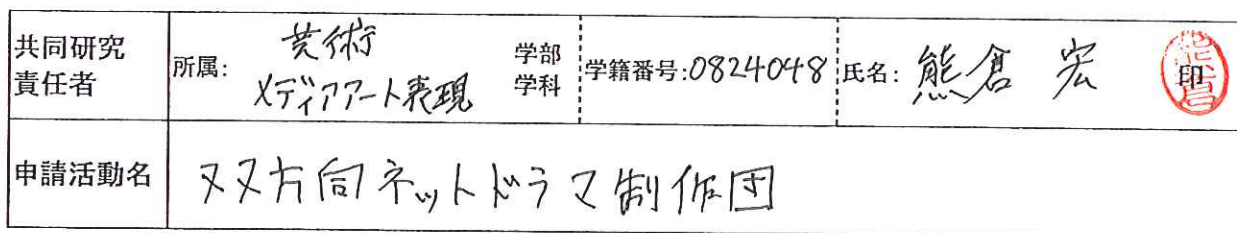 共同研究
責任者
所属: 芸術 学部
メディアアート表現 学科
学籍番号:0824048
氏名: 熊倉 宏 印
申請活動名
双方向ネットドラマ制作団